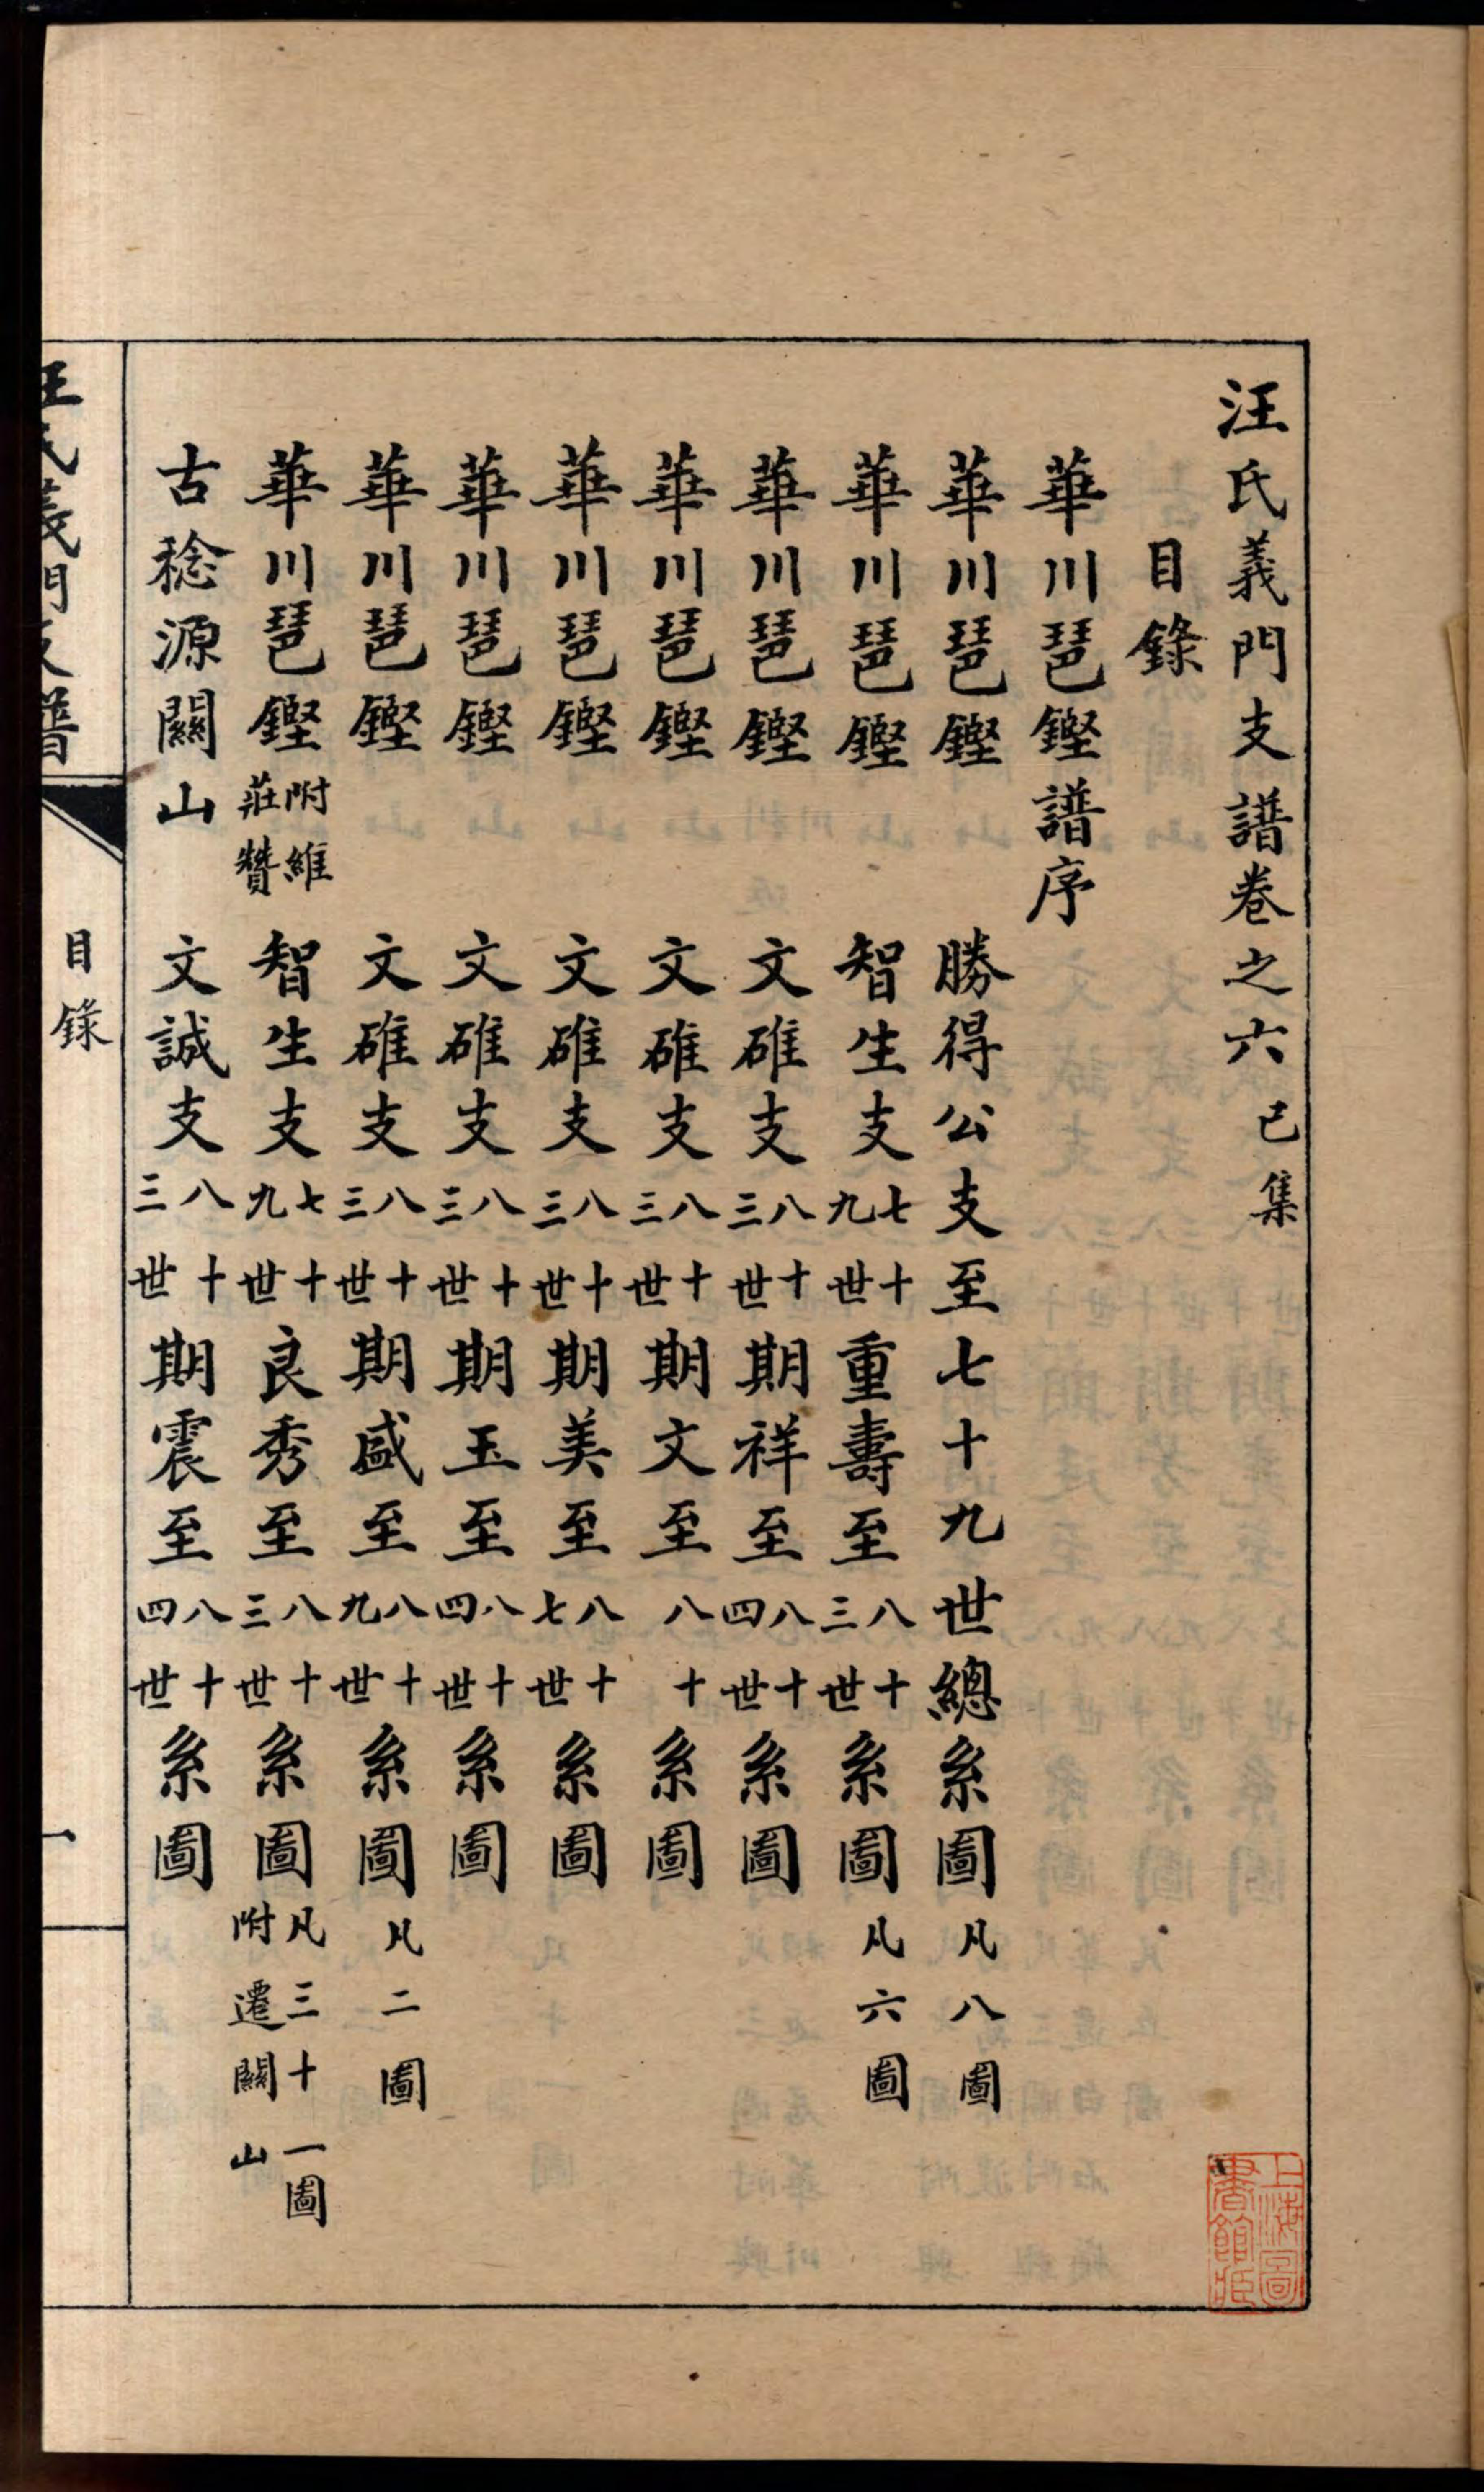 汪氏義門支譜卷之六 己集
目錄
華川琶鏗譜序
華川琶鏗 勝得公支至七十九世總系圖 凡八圖
華川琶鏗 智生支 七十九世 重壽至 八十三世 系圖 凡六圖
華川琶鏗 文碓支 八十三世 期祥至 八十四世 系圖
華川琶鏗 文碓支 八十三世 期文至 八十 系圖
華川琶鏗 文碓支 八十三世 期美至 八十七世 系圖
華川琶鏗 文碓支 八十三世 期玉至 八十四世 系圖
華川琶鏗 文碓支 八十三世 期盛至 八十九世 系圖 凡二圖
華川琶鏗 附維莊贊 智生支 七十九世 良秀至 八十三世 系圖 凡三十一圖附遷關山
古稔源關山 文誠支 八十三世 期震至 八十四世 系圖
汪氏義門支譜
目錄
一
上海圖書館藏